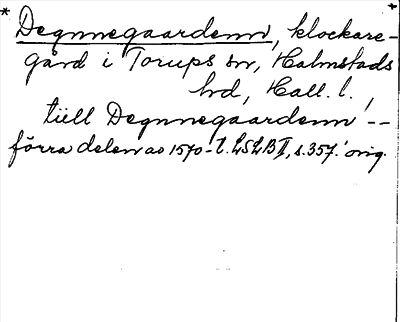 * Degnnegaardenn, klockare-
gård i Torups sn, Halmstads
hd, Hall. l.,
tiill Degnnegaardenn --
förra delen av 1570-t. LSLB II, s. 357. orig.